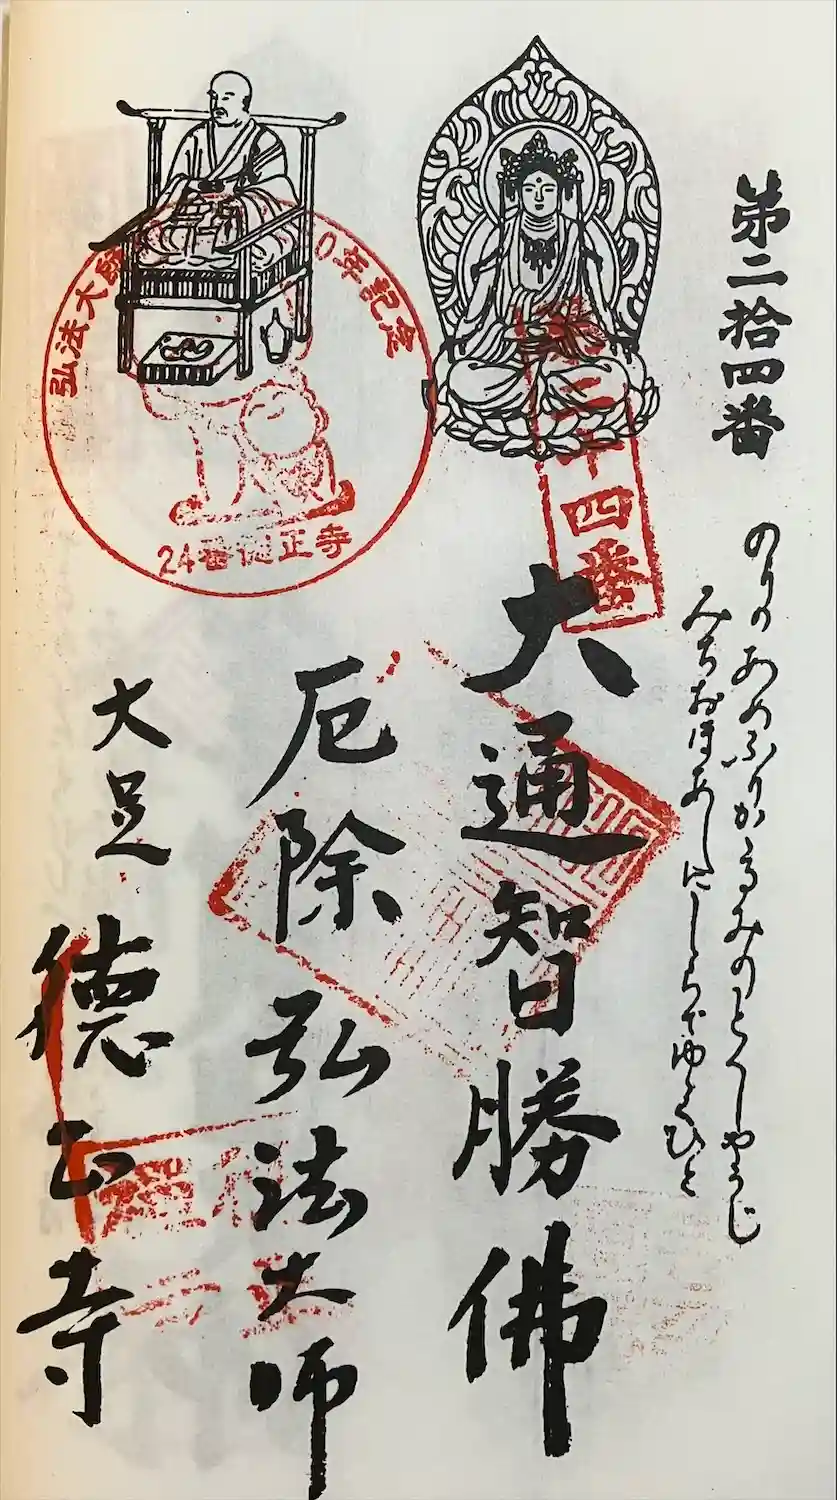 第二拾四番
のりのあめのふりかゝるみのとくしやうじ
みちおほあしにしらでゆくひと
第二十四番
大通智勝佛
厄除弘法大師
大足
徳正寺
弘法大師
0年記念
24番徳正寺